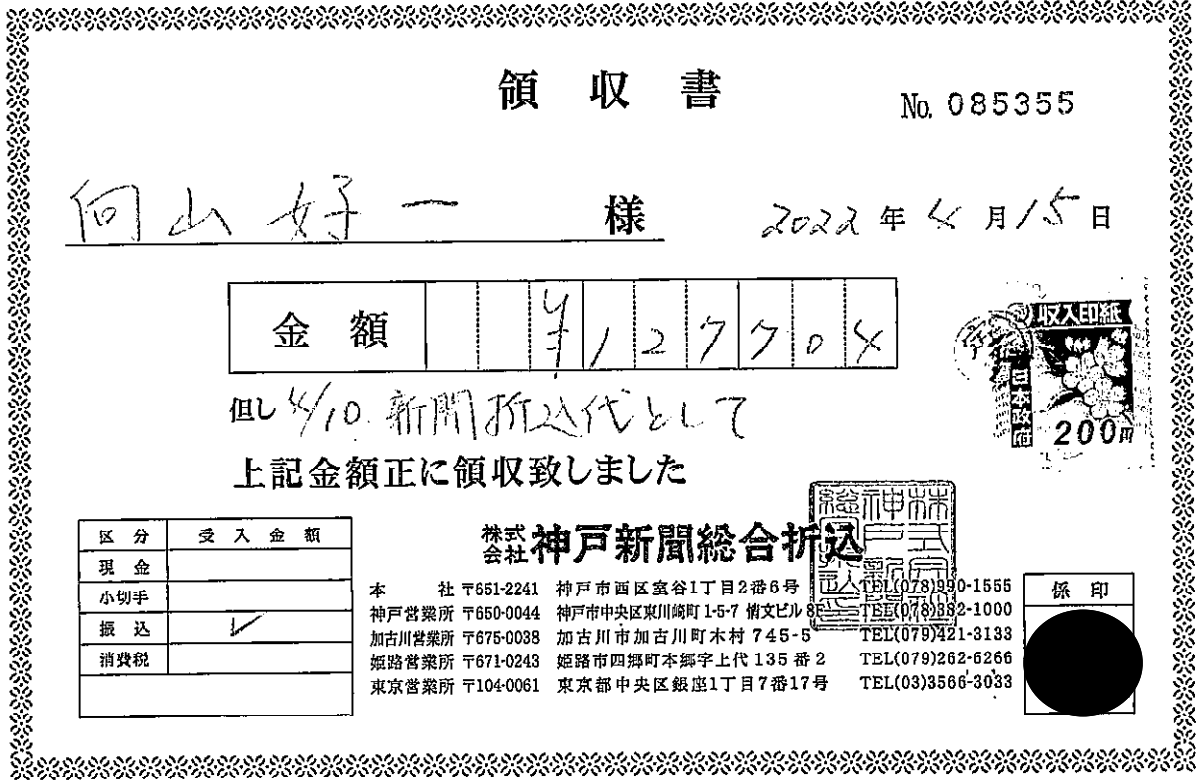 領収書
No. 085355
向山好一 様
2022年4月15日
金額 ¥127704
収入印紙
日本政府
200円
但し 4/10 新聞折込代として
上記金額正に領収致しました
区分 受入金額
現金
小切手
振込 ✓
消費税
株式会社 神戸新聞総合折込
本社 〒651-2241 神戸市西区室谷1丁目2番6号 TEL(078)990-1555
神戸営業所 〒650-0044 神戸市中央区東川崎町1-5-7 情文ビル8F TEL(078)382-1000
加古川営業所 〒675-0038 加古川市加古川町木村745-5 TEL(079)421-3133
姫路営業所 〒671-0243 姫路市四郷町本郷字上代135番2 TEL(079)262-6266
東京営業所 〒104-0061 東京都中央区銀座1丁目7番17号 TEL(03)3566-3033
係印